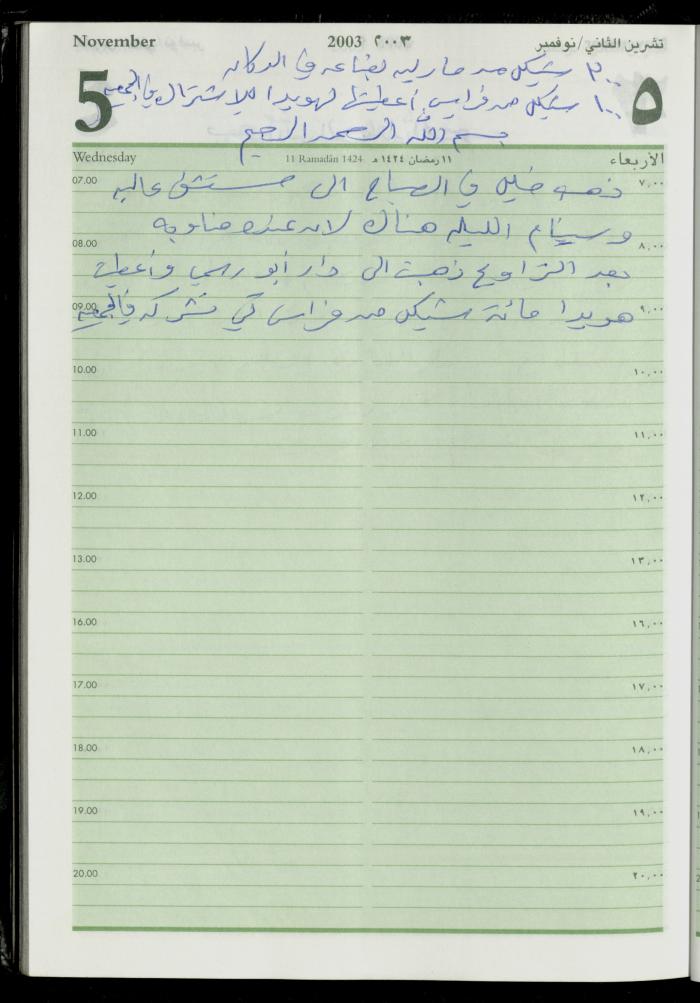 November 2003 ٢٠٠٣ تشرين الثاني/نوفمبر
5 ٥
٣٠٠ شيكل من ماريه بضاعه في الدكان
١٠٠ شيكل من فراس أعطيتها لهويدا للاشتراك في الجمعيه
بسم الله الرحمن الرحيم
Wednesday 11 Ramadān 1424 ١١ رمضان ١٤٢٤ هـ الأربعاء
07.00 ٧,٠٠
ذهب خليل في الصباح الى مستشفى عاليه
وسينام الليله هناك لان عنده مناوبه
08.00 ٨,٠٠
بعد التراويح ذهبت الى دار أبو رسمي وأعطيت
09.00 ٩,٠٠
هويدا مائة شيكل من فراس كي تشركه في الجمعيه
10.00 ١٠,٠٠
11.00 ١١,٠٠
12.00 ١٢,٠٠
13.00 ١٣,٠٠
16.00 ١٦,٠٠
17.00 ١٧,٠٠
18.00 ١٨,٠٠
19.00 ١٩,٠٠
20.00 ٢٠,٠٠